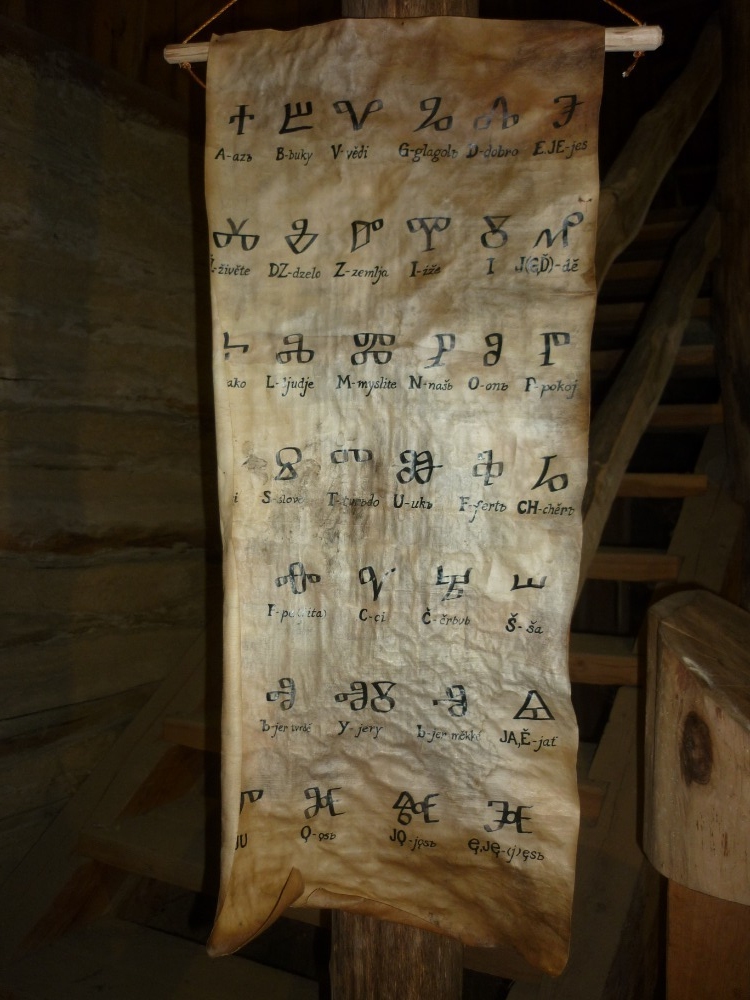 ⰀⰁⰂⰃⰄⰅ
A-azъ B-buky V-vědi G-glagolъ D-dobro E,JE-jes
ⰆⰇⰈⰉⰊⰌ
-živěte DZ-dzelo Z-zemlja I-iže I J(G,Ď)-dě
ⰍⰎⰏⰐⰑⰒ
ako L-ljudje M-myslite N-našъ O-onъ P-pokoj
ⰔⰕⰖⰗⰘ
S-slovo T-tvrьdo U-ukъ F-fertъ CH-chěrъ
ⰪⰜⰝⰞ
C-ci Č-črьvь Š-ša
ⰟⰟⰊⰠⰡ
Ъ-jer tvrdé Y-jery Ь-jer měkké JA,Ě-jať
ⰣⰘⰤⰙⰤⰗⰤ
JU Ǫ-ǫsъ JǪ-jǫsъ Ę,JĘ-(j)ęsъ